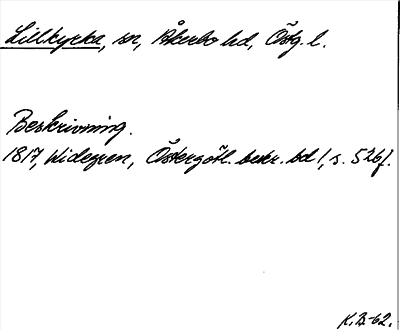 Lillkyrka, sn, Åkerbo hd, Östg. l.
Beskrivning.
1817, Widegren, Östergötl. beskr. bd 1, s. 526f.
K.B-62.